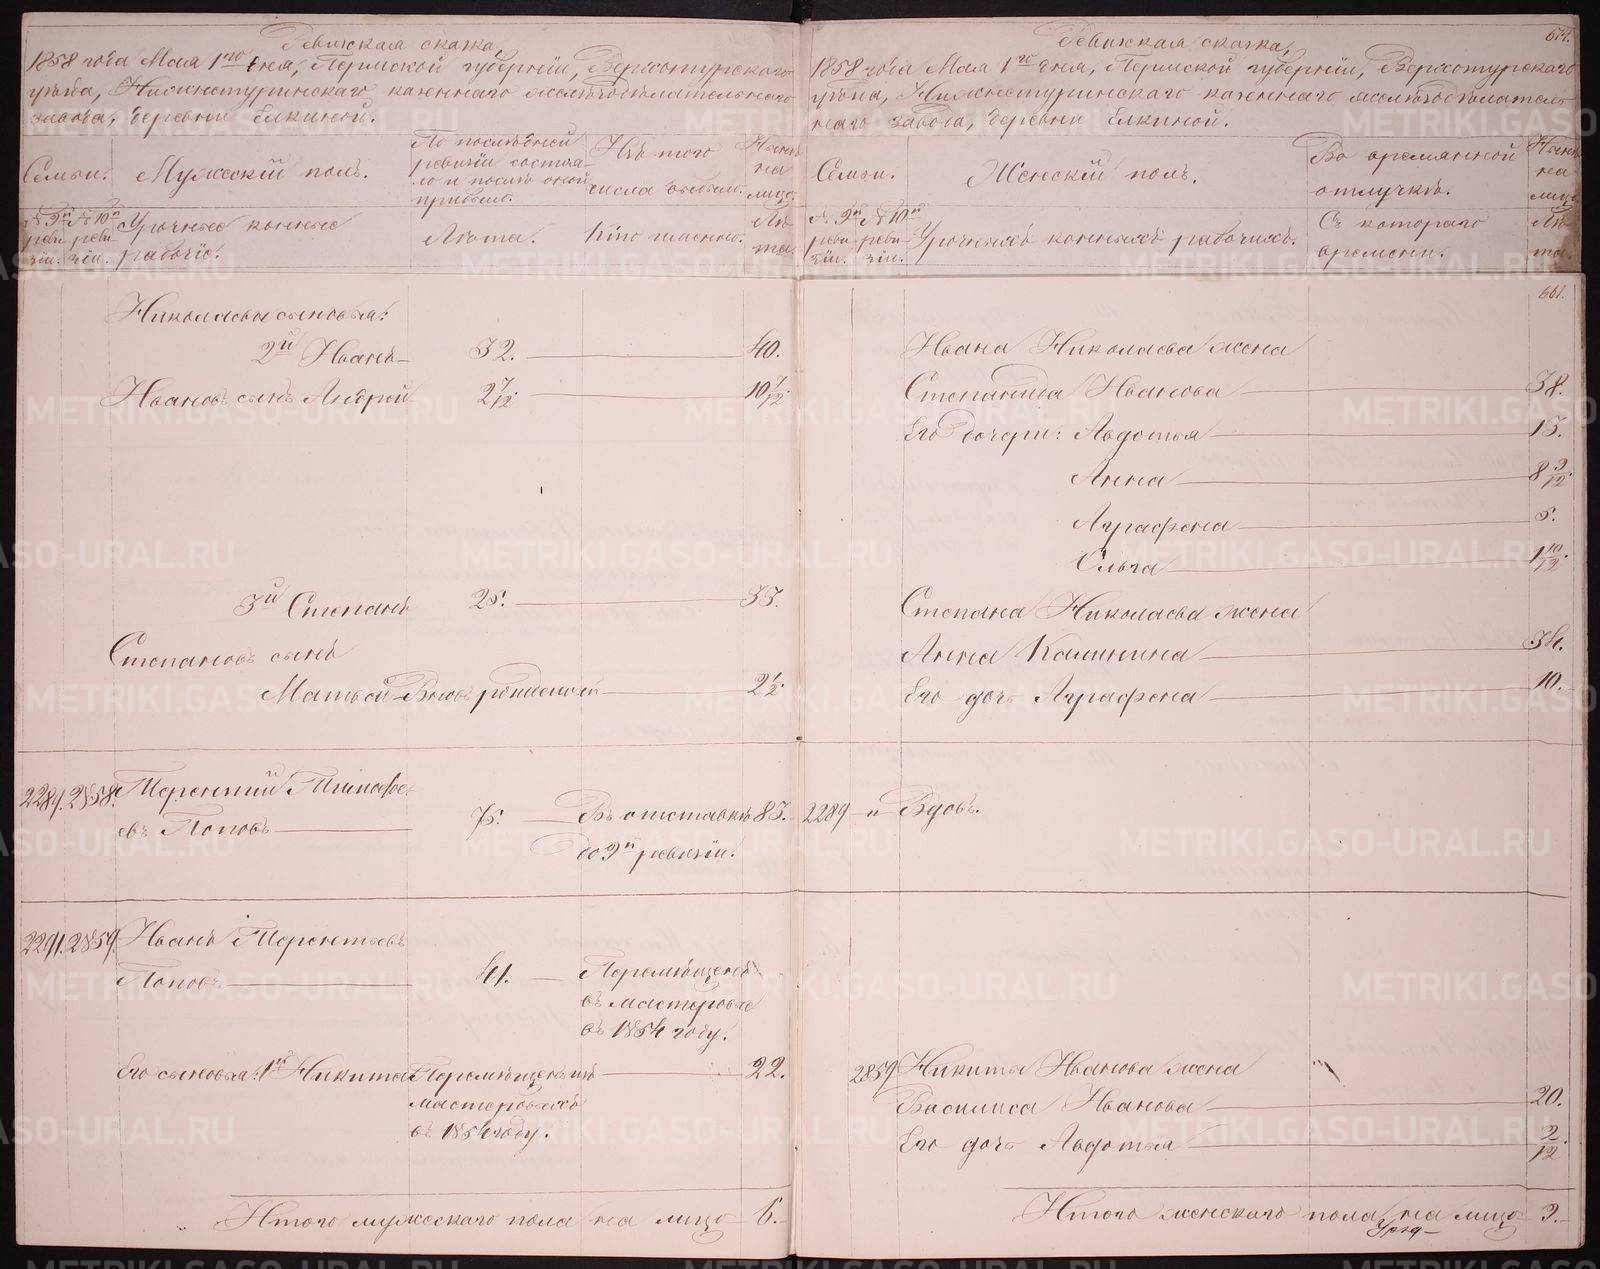 Ревижская сказка,
1858 года Мая 1го дня, Пермской губернии, Верхотурского
уезда, Нижнетуринскаго казеннаго железоделательнаго
завода, деревни Елкиной.
Семьи. Мужеский полъ. По последней ревизiи состояло и после оной прибыло. Изъ того числа выбыло. Ныне на лицо.
№ 9й ревизiи. № 10й ревизiи. Урочные конные рабочiе. Лета. Кто именно. Лета.
Николаевы сыновья:
2й Иванъ 32. 40.
Ивановъ сынъ Андрей 2 7/12 10 7/12.
3й Степанъ 25. 33.
Степановъ сынъ
Матвей Вновь рожденный 2 1/2.
2289. 2858. Терентий
въ Поповъ 75. Въ отставке 83.
до 9й ревизiи.
2291. 2859. Иванъ Терентьевъ
Поповъ 41. Перемещенъ
въ мастеровые
въ 1854 году.
Его сыновья: 1й Никита Перемещенъ изъ 22.
мастеровыхъ
въ 1854 году.
Итого мужескаго пола на лицо 6.
674.
Ревижская сказка,
1858 года Мая 1го дня, Пермской губернии, Верхотурскаго
уезда, Нижнетуринскаго казеннаго железоделатель
наго завода, деревни Елкиной.
Семьи. Женскiй полъ. Во временной отлучке. Ныне на лицо
№ 9й ревизiи. № 10й ревизiи. Урочныхъ конныхъ рабочихъ. Съ котораго времени. Лета.
661.
Ивана Николаева жена
Степанида Иванова 38.
Его дочери: Авдотья 13.
Анна 8 9/12.
Аграфена 5.
Ольга 1 10/12.
Степана Николаева жена
Анна Калинина 34.
Его дочь Аграфена 10.
2289 " Вдовъ.
2859 Никиты Иванова жена
Василиса Иванова 20.
Его дочь Авдотья 2/12.
Итого женскаго пола на лицо 9.
METRIKI.GASO-URAL.RU